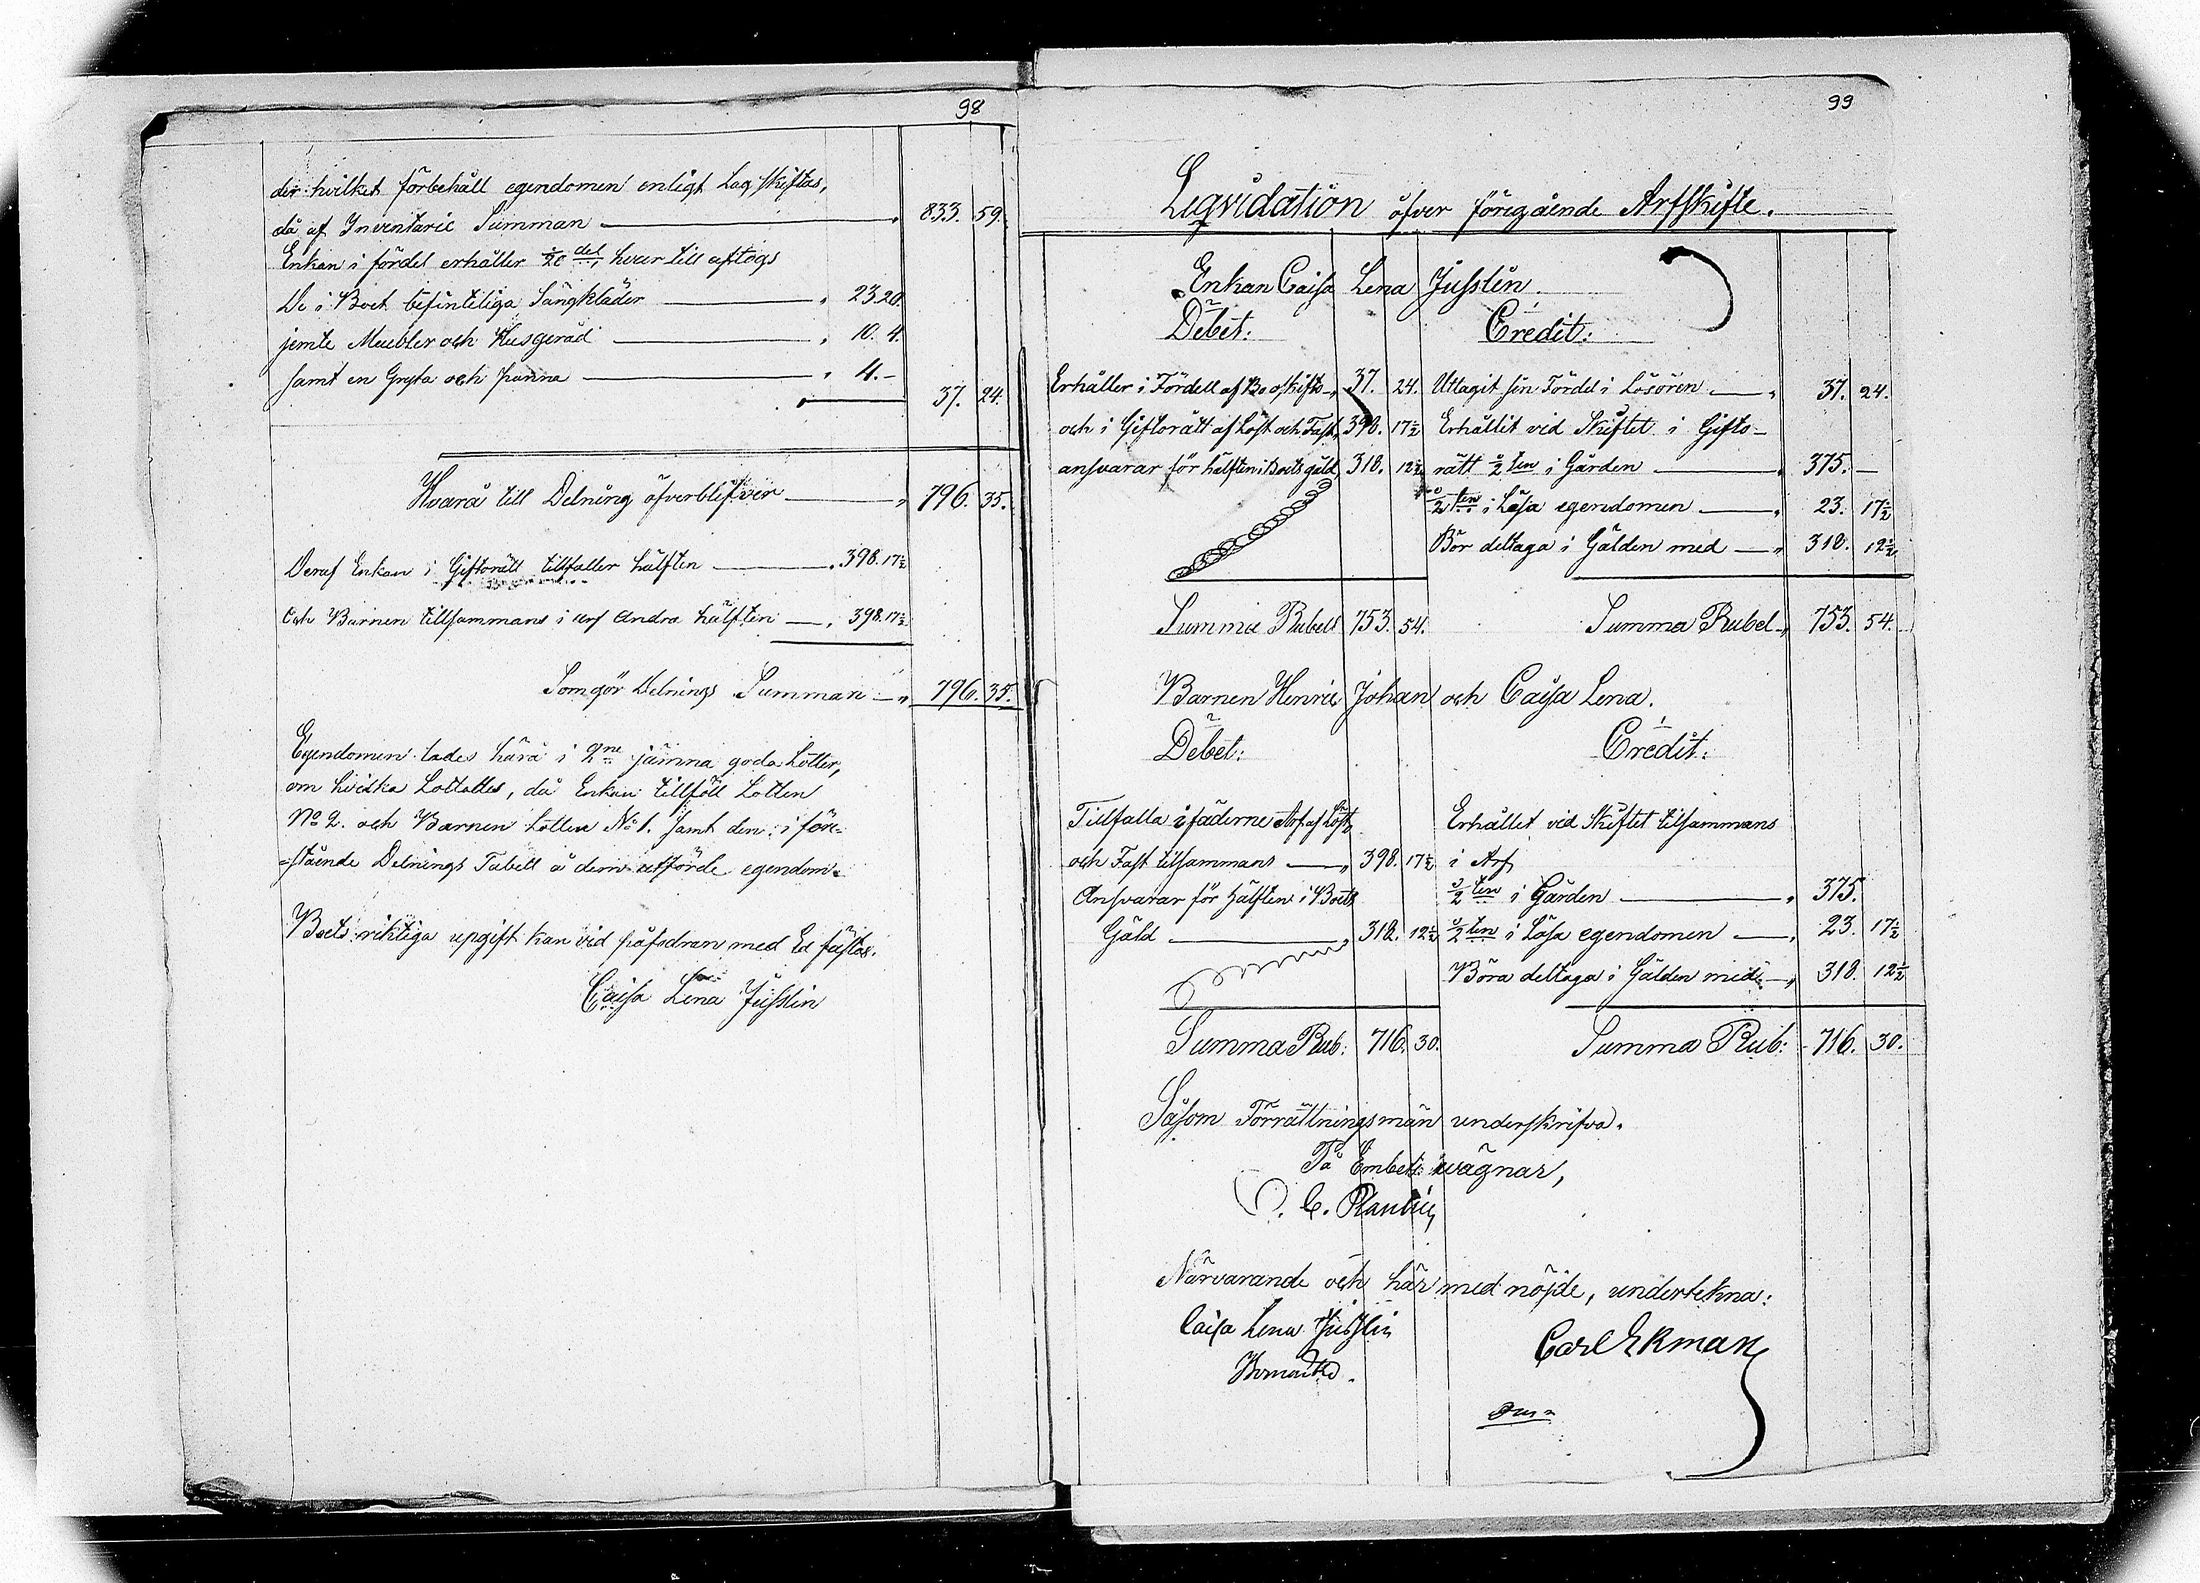 98
der hvilket förbehåll egendomen enligt Lag skiftas,
då af Inventarie Summan — " 833. 59.
Enkan i fördel erhåller 1/20 del, hvar till aftogs
De i Boet befinteliga Sängkläder — " 23.20.
jemte Meubler och Husgeråd — " 10. 4.
samt en Gryta och panna — " 4. –
37. 24.
Hvarå till Delning öfverblifver — " 796. 35.
Deraf Enkan i Giftorätt tillfaller hälften — " 398. 17½
Och Barnen tillsammans i arf andra hälften — " 398. 17½
Som gör Delnings Summan — " 796. 35.
Egendomen lades härå i 2ne jämna goda Lotter,
om hvilka Lottades, då Enkan tillföll Lotten
No 2. och Barnen Lotten No 1. samt den i före-
stående Delnings Tabell å dem utförde egendom.
Boets riktiga upgift kan vid påfodran med Ed fästas.
Caisa Lena Jusslin
99
Liqvidation öfver föregående Arfskifte.
Enkan Caisa Lena Jusslin.
Debet: Credit:
Erhåller i Fördell af Bo oskifto " 37. 24. Uttagit sin Fördel i Lösören — " 37. 24.
och i Giftorätt af Löst och Fast, 398. 17½ Erhållit vid Skiftet i Gifto-
ansvarar för hälften i Boets gäld, 318. 12½ rätt ½ten i Gården — " 375. —
½ten i Lösa egendomen — " 23. 17½
Bör deltaga i Gälden med — " 318. 12½
Summa Rubel 753. 54. Summa Rubel " 753. 54.
Barnen Henric Johan och Caisa Lena.
Debet: Credit:
Tillfalla i fäderne Arf af Löst Erhållet vid Skiftet tilsammans
och Fast tilsammans — " 398. 17½ i Arf
Ansvarar för hälften i Boets ½ten i Gården — " 375.
Gäld — " 318. 12½ ½ten i Lösa egendomen — " 23. 17½
Böra deltaga i Gälden med — " 318. 12½
Summa Rub: 716. 30. Summa Rub: 716. 30.
Såsom Förrättningsmän underskrifva.
På Embets wägnar,
C. Plantin
Närvarande och här med nöjde, underteckna:
Caisa Lena Jusslin Carl Ekman